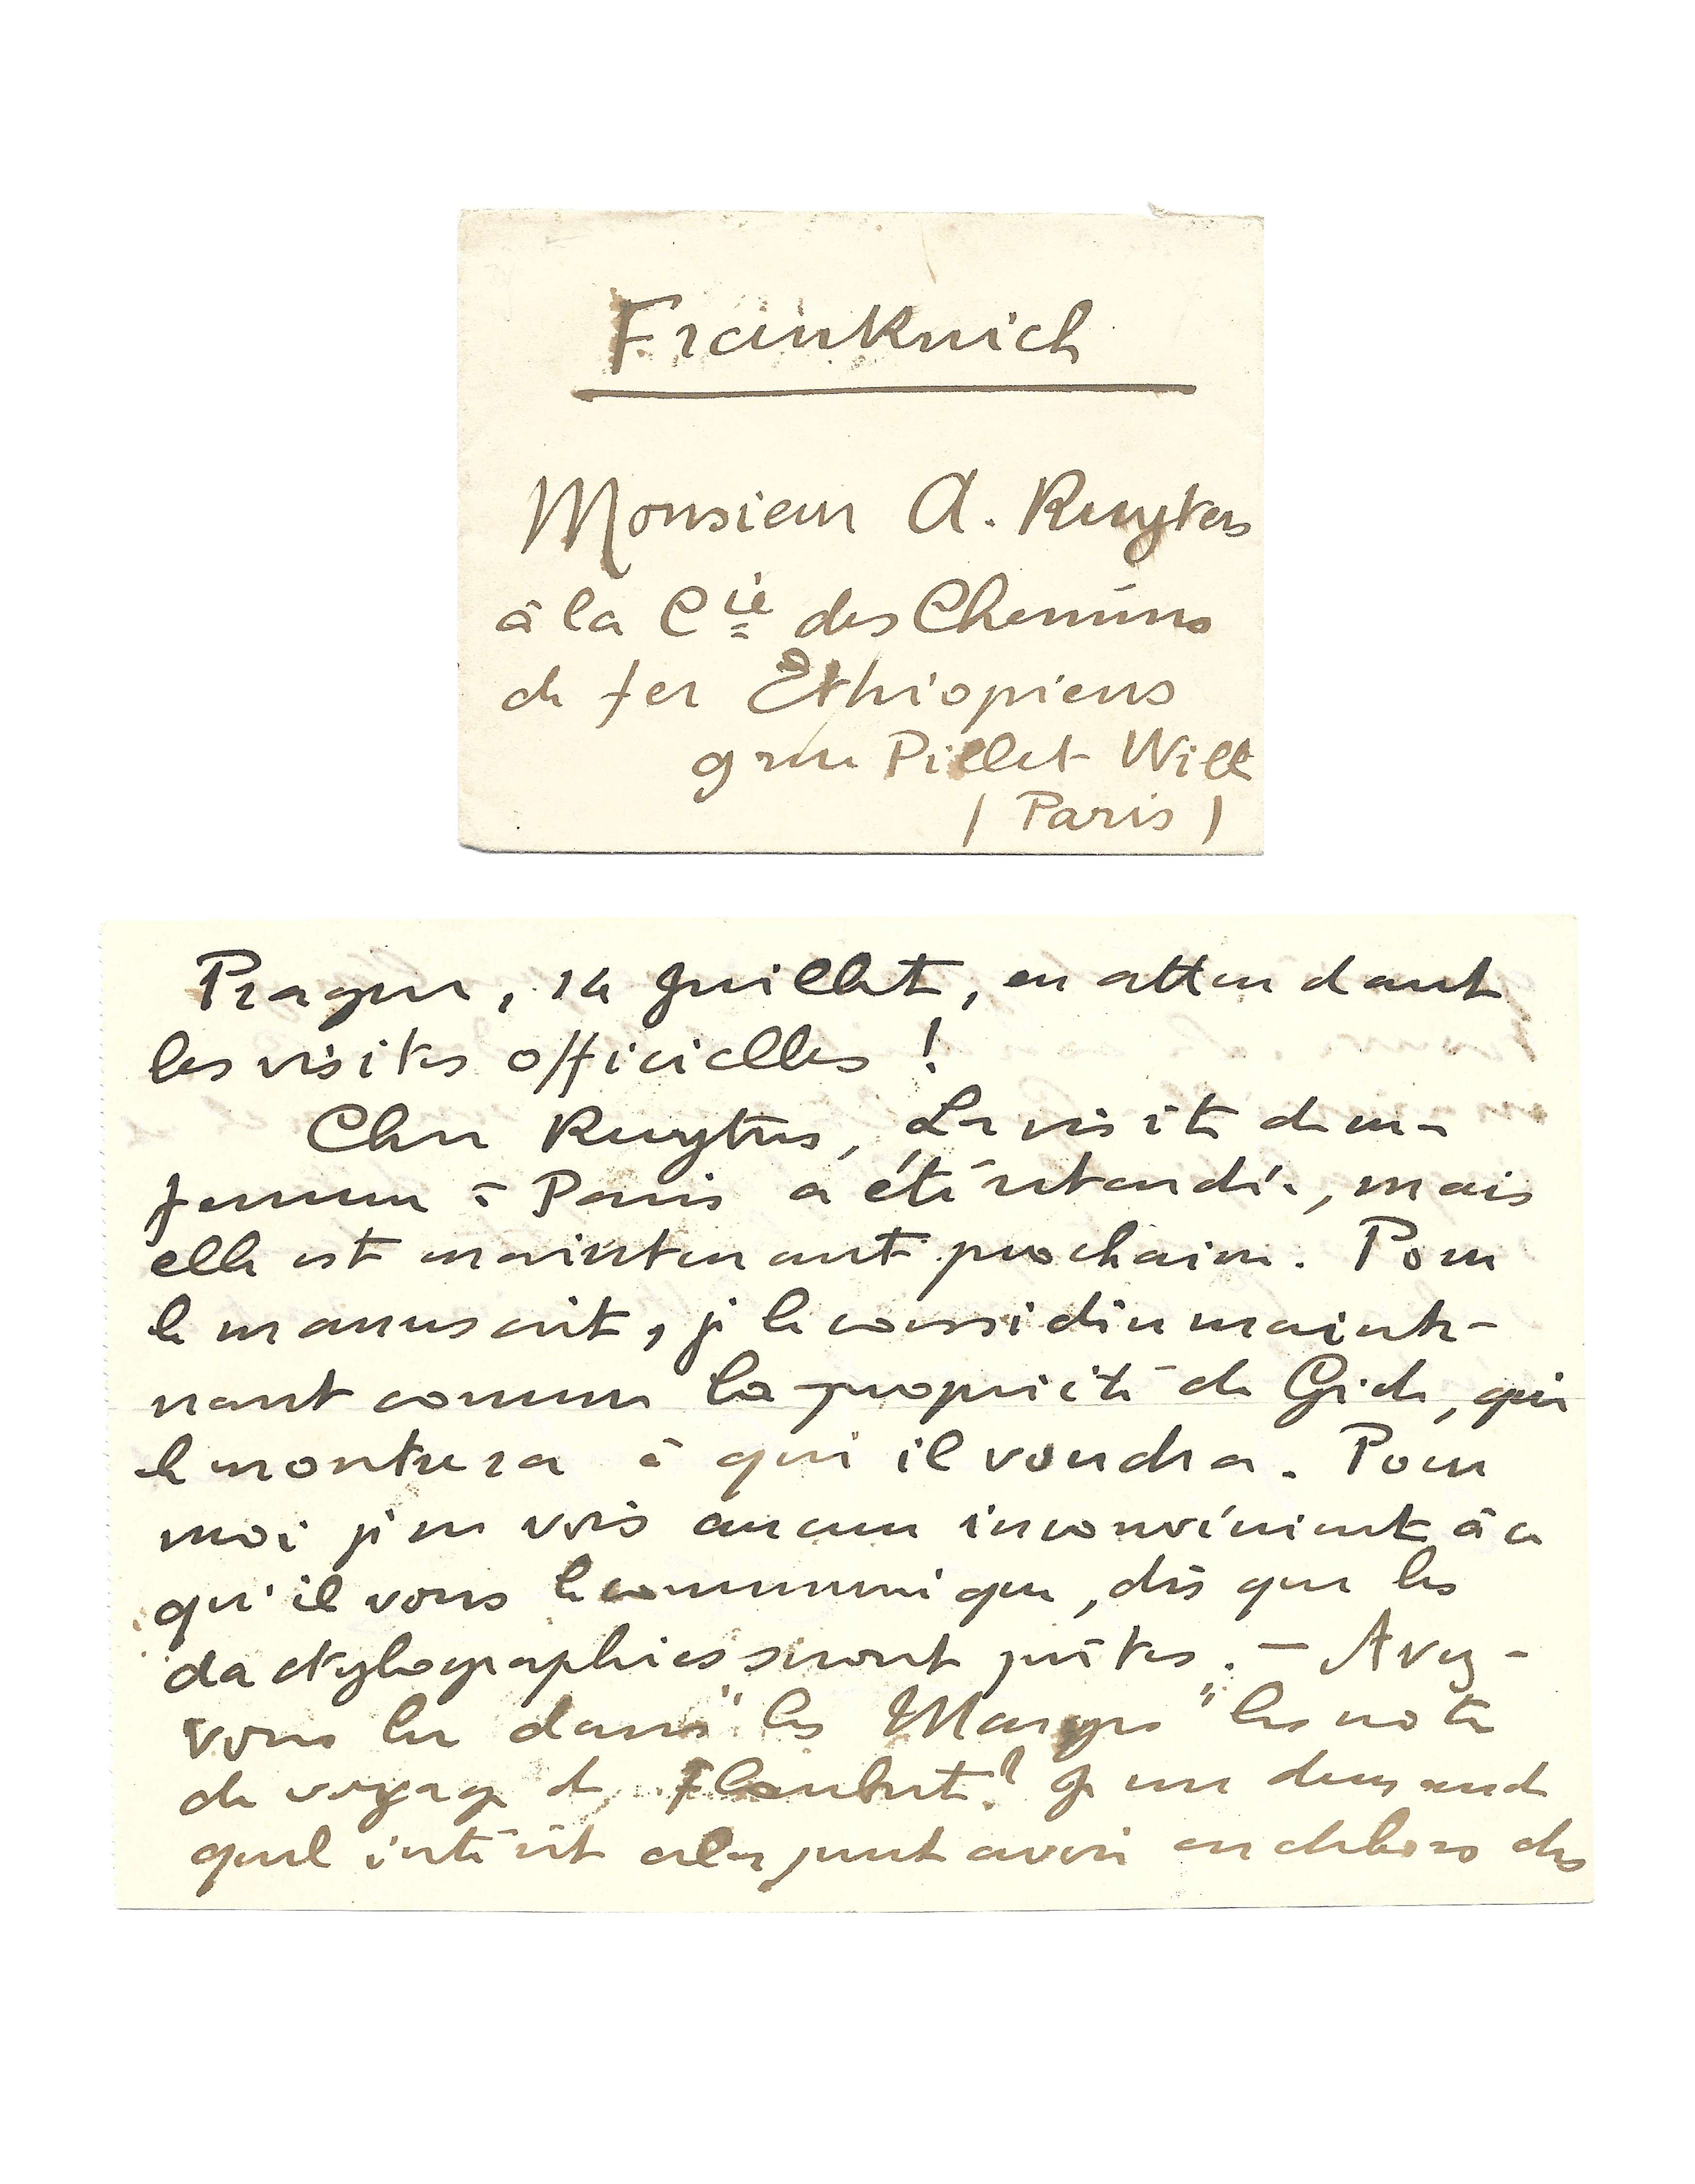 Frankreich
Monsieur A. Ruyters
à la Cie des Chemins
de fer Ethiopiens
9 rue Pillet Will
(Paris)
Prague, 14 Juillet, en attendant
les visites officielles !
Cher Ruyters, La visite de ma
femme à Paris a été retardée, mais
elle est maintenant prochaine. Pour
le manuscrit, je le considère mainte-
nant comme la propriété de Gide, qui
le montrera à qui il voudra. Pour
moi je ne vois aucun inconvénient à ce
qu'il vous le communique, dès que les
dactylographies seront prêtes. – Avez-
vous lu dans "les Marges" les notes
de voyage de Flaubert? Je me demande
quel intérêt cela peut avoir en dehors des